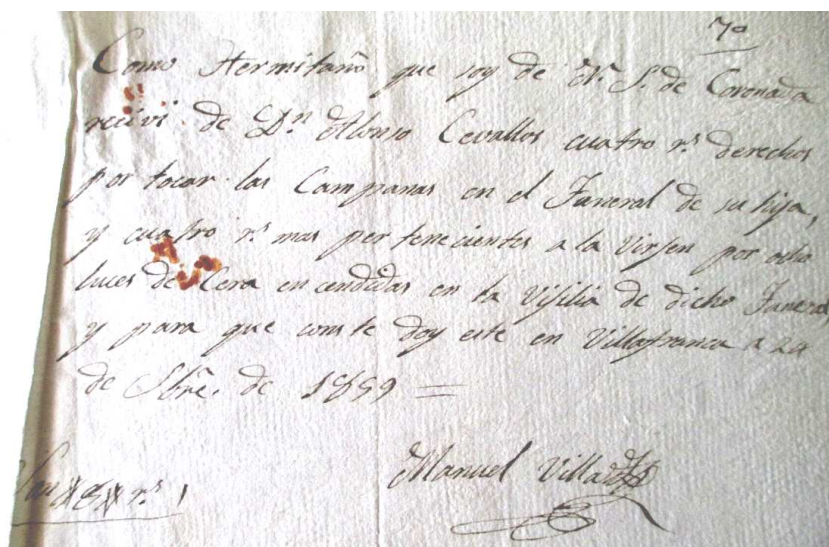 7º
Como Hermitaño que soy de N. S. de Coronada
recivi de Dn. Alonso Cevallos cuatro rs. derechos
por tocar las Campanas en el Funeral de su hija,
y cuatro rs. mas pertenecientes a la Virgen por ocho
luces de Cera encendidas en la Vigilia de dicho Funeral,
y para que conste doy este en Villafranca a 24
de Sbre. de 1859 =
Manuel Villa
Son 8 rs.